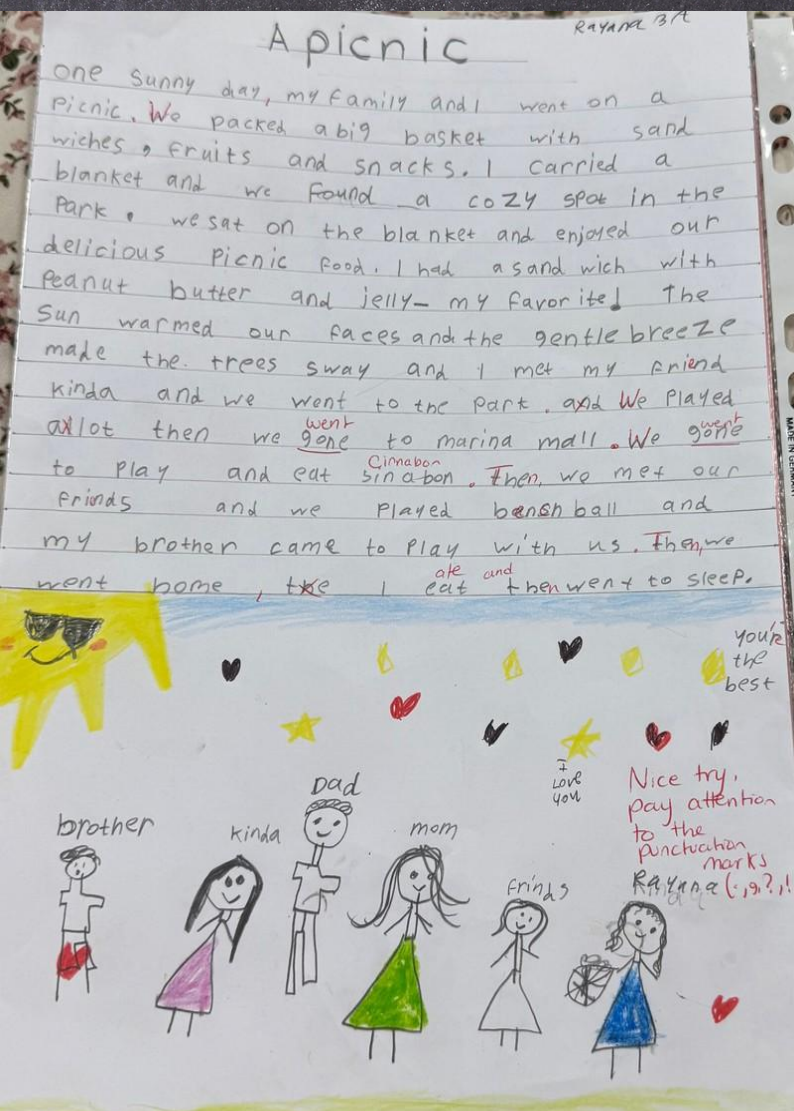 Rayana 3A
A picnic
one sunny day, my family and I went on a
picnic. We packed a big basket with sand
wiches, fruits and snacks. I carried a
blanket and we found a cozy spot in the
Park. we sat on the blanket and enjoyed our
delicious picnic food. I had a sand wich with
Peanut butter and jelly- my favorite! The
sun warmed our faces and the gentle breeze
made the trees sway and I met my friend
kinda and we went to the park. and We played
allot then we gone went to marina mall. We gone went
to play and eat sinabon Cinnabon. Then, we met our
frinds and we played bensh ball and
my brother came to play with us. Then, we
went home, the I eat ate and then went to sleep.
you're
the
best
I
Love
you
Nice try,
pay attention
to the
punctuation
marks
Rayana (.,?,!
brother
kinda
Dad
mom
frinds
MADE IN GERMANY